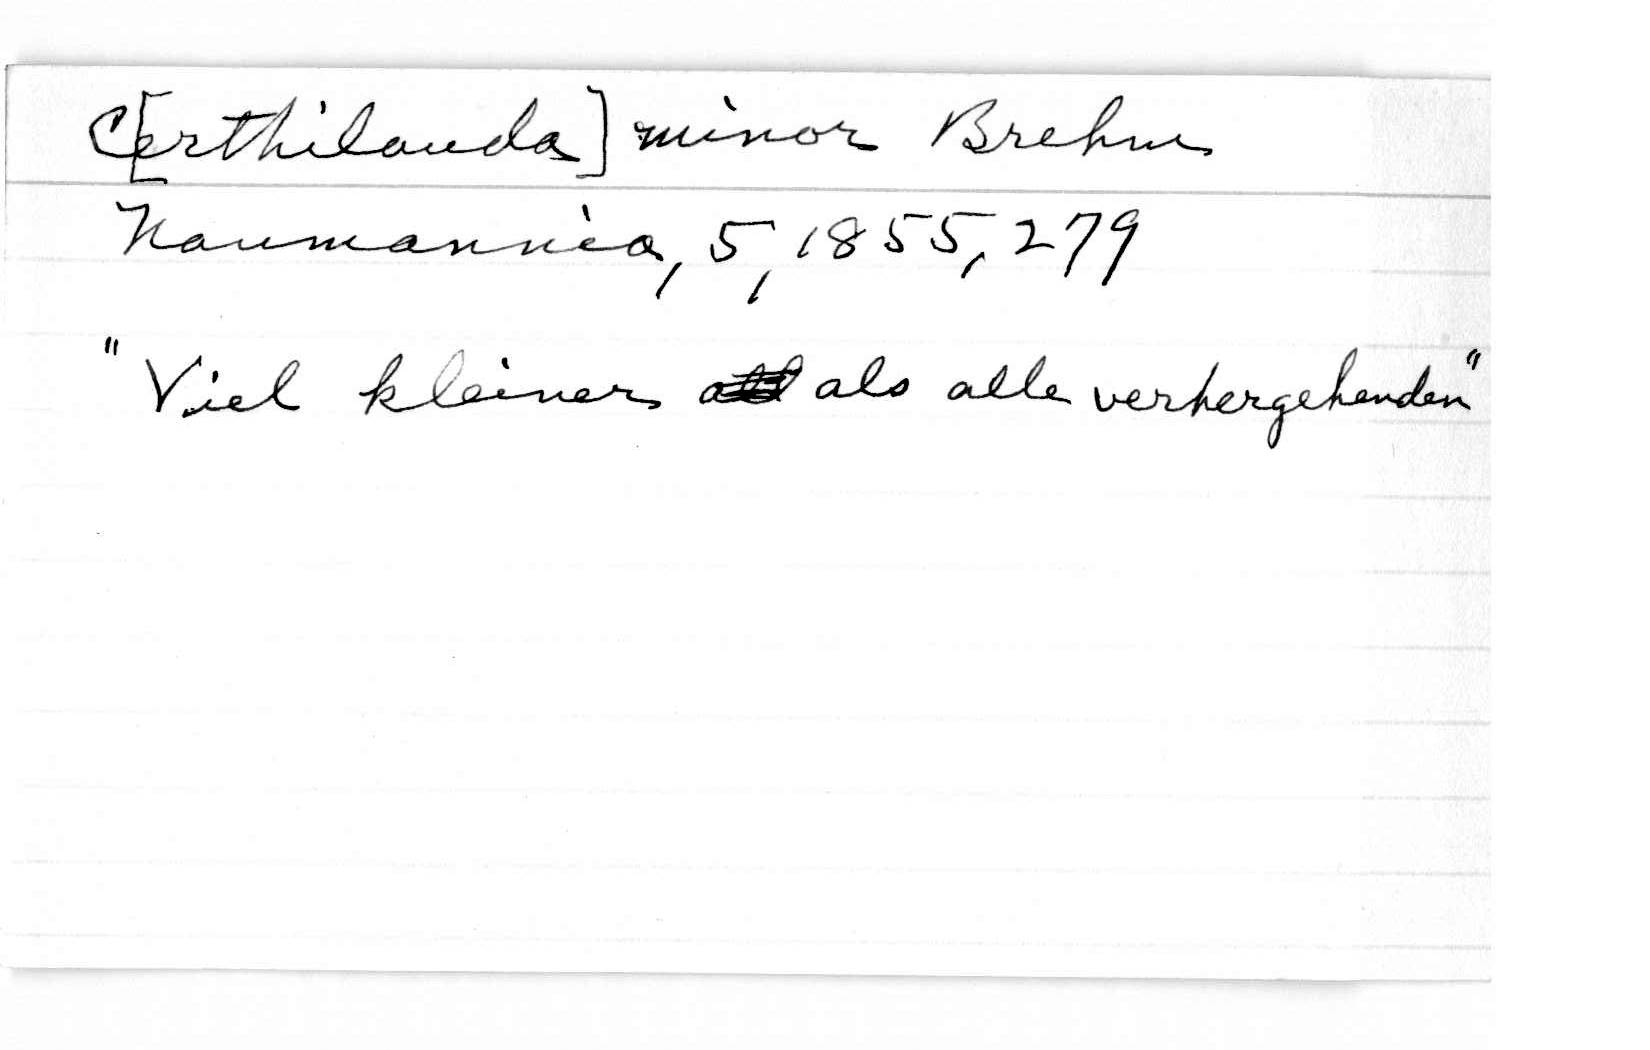 C[erthilauda] minor Brehm
Naumannia, 5, 1855, 279
"Viel kleiner als alle verhergehenden"